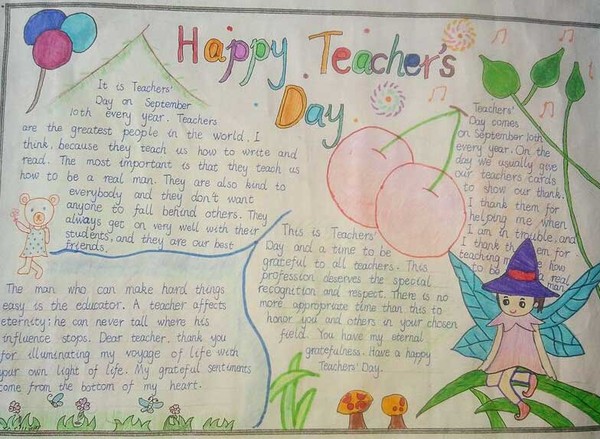 Happy Teacher's
Day
It is Teachers'
Day on September
10th every year. Teachers
are the greatest people in the world. I
think, because they teach us how to write and
read. The most important is that they teach us
how to be a real man. They are also kind to
everybody and they don't want
anyone to fall behind others. They
always get on very well with their
students, and they are our best
friends.
Teachers'
Day comes
on September 10th
every year. On the
day we usually give
our teachers cards
to show our thank.
I thank them for
helping me when
I am in trouble, and
I thank them for
teaching me how
to be a real
man.
This is Teachers'
Day and a time to be
grateful to all teachers. This
profession deserves the special
recognition and respect. There is no
more appropriate time than this to
honor you and others in your chosen
field. You have my eternal
gratefulness. Have a happy
Teachers' Day.
The man who can make hard things
easy is the educator. A teacher affects
eternity; he can never tall where his
influence stops. Dear teacher, thank you
for illuminating my voyage of life with
your own light of life. My grateful sentiments
come from the bottom of my heart.